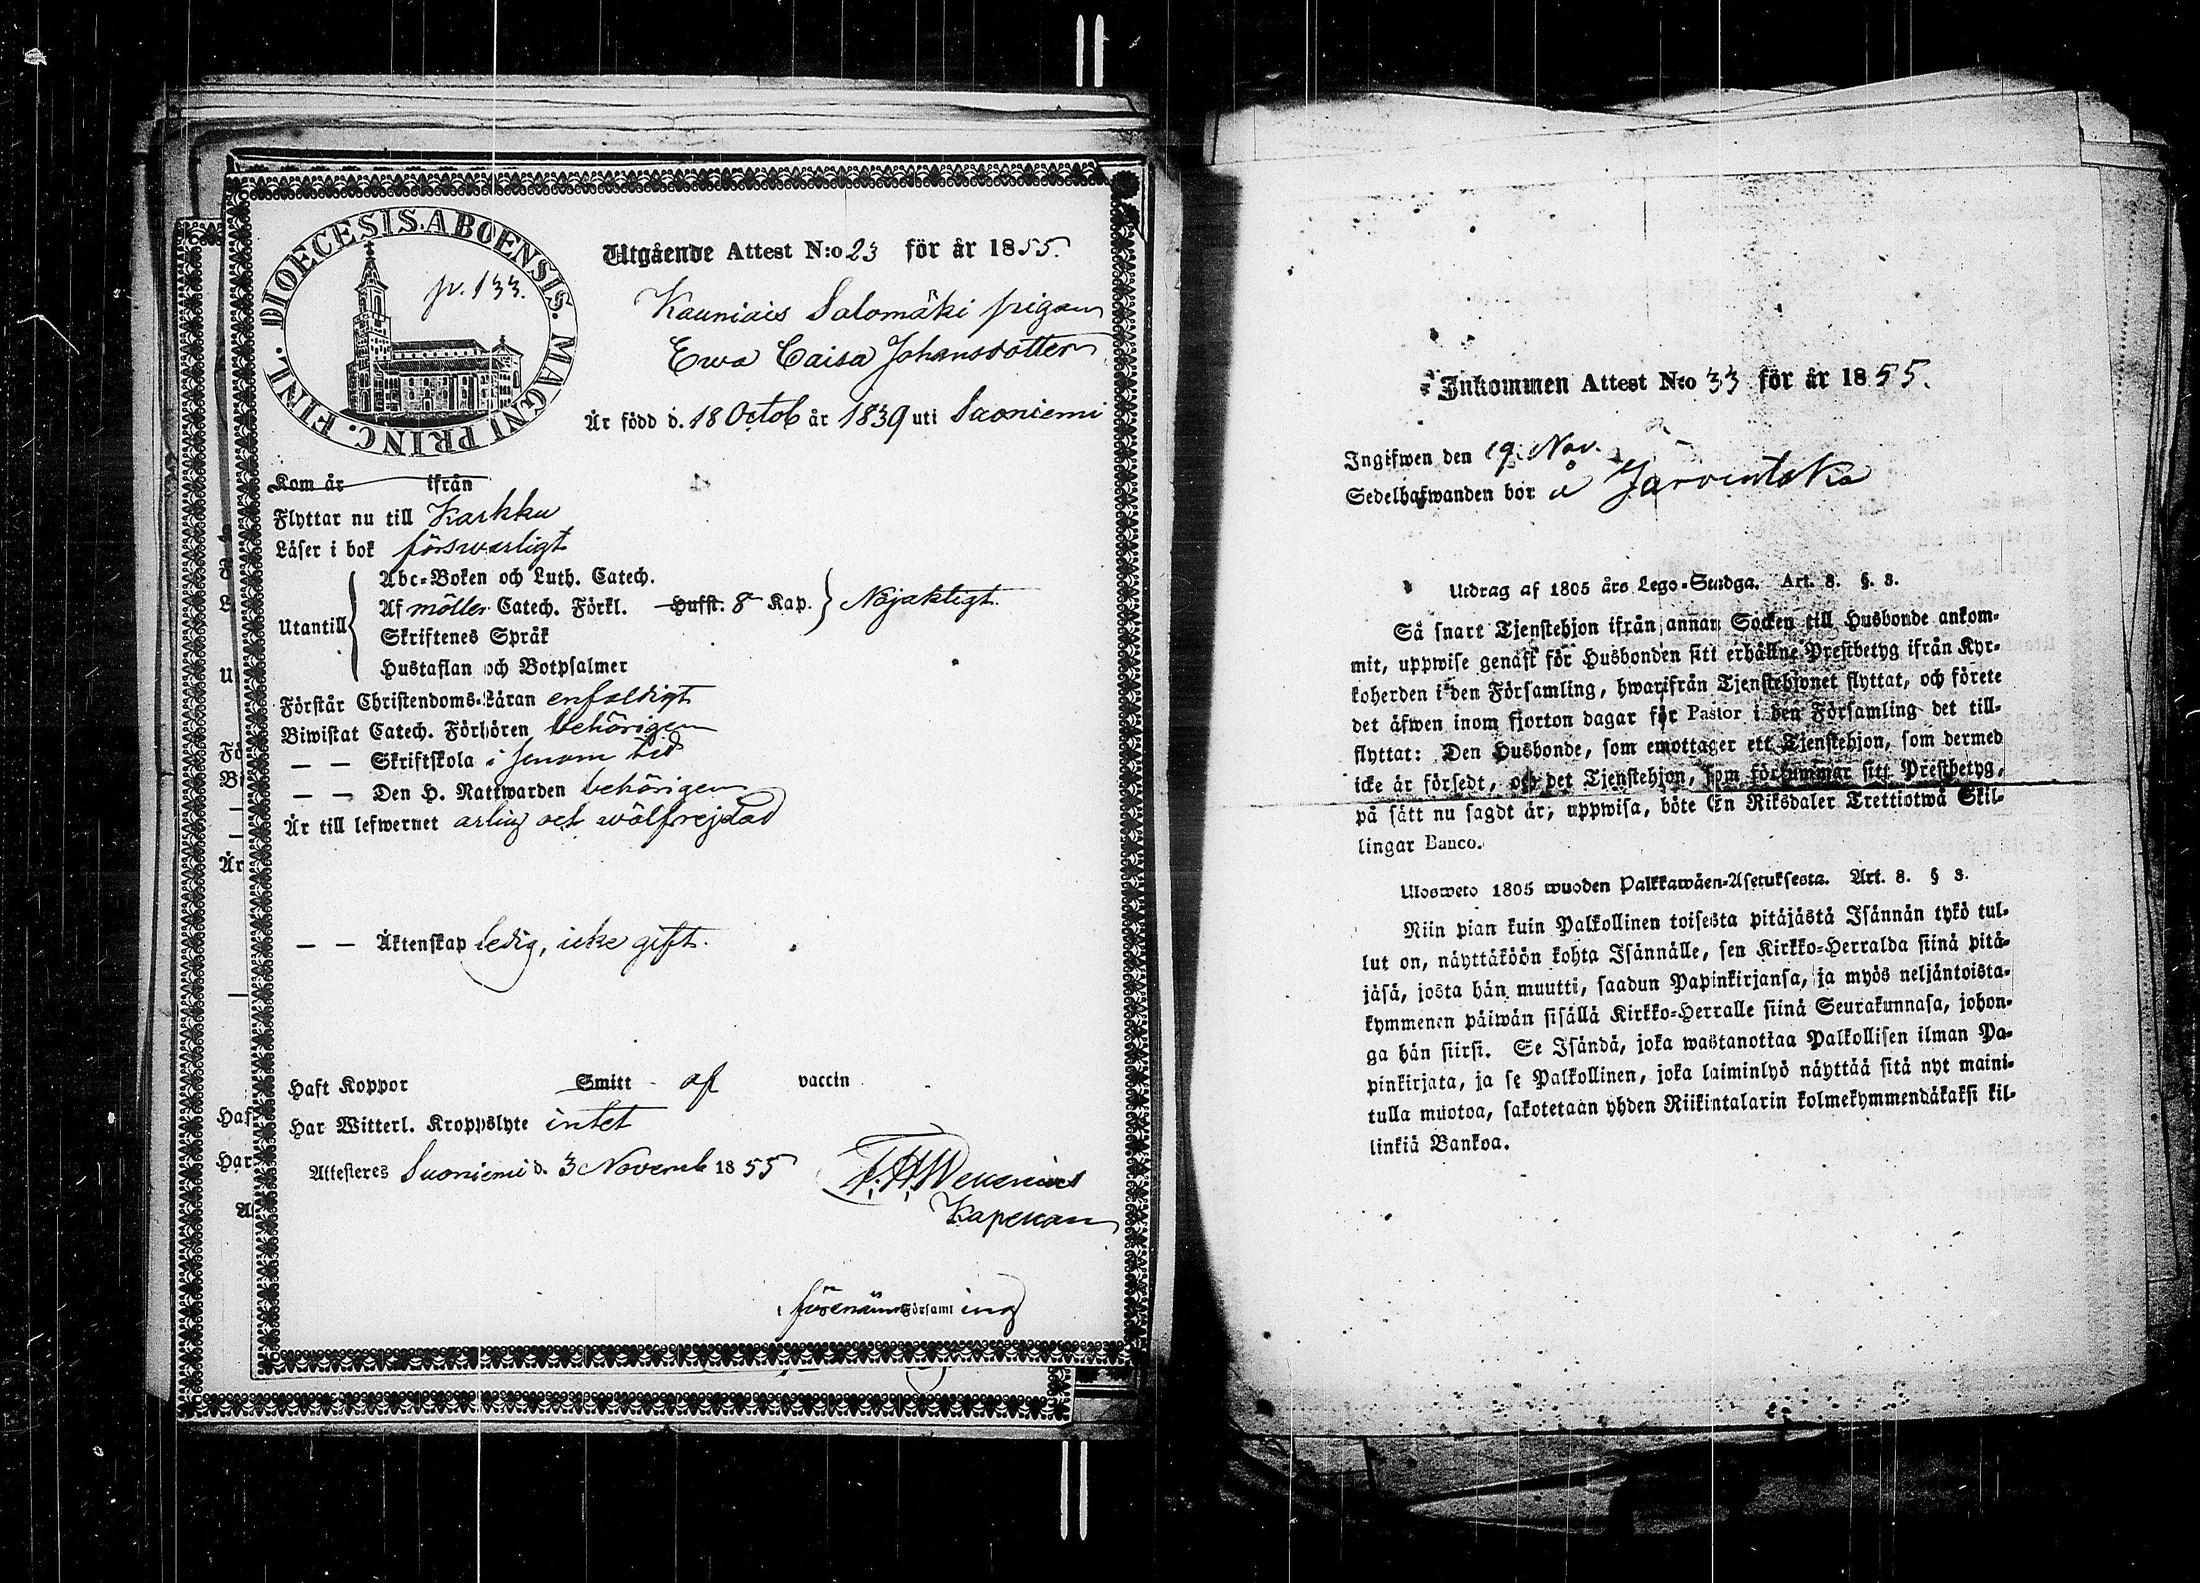 DIOECESIS. ABOENSIS. MAGNI PRINC. FINL.
p. 133.
Utgående Attest N:o 23 för år 1855.
Kauniais Salomäki pigan
Ewa Caisa Johansdotter
Är född d. 18 Octob år 1839 uti Suoniemi
Kom år ifrån
Flyttar nu till Karkku
Läser i bok förswarligt
Utantill
Abc-Boken och Luth. Catech.
Af möller Catech. Förkl. Hufst. 8 Kap. Nöjaktigt.
Skriftenes Språk
Hustaflan och Botpsalmer
Förstår Christendoms-Läran enfaldigt
Biwistat Catech. Förhören behörigen
— — Skriftskola i
— — Den H. Nattwarden behörigen
Är till lefwernet ärlig och wälfrejdad
— — Äktenskap ledig, icke gift.
Haft Koppor Smitt af vaccin
Har Witterl. Kroppslyte intet
Attesteres Suoniemi d. 3 Novemb 1855
F. H.
Kapellan
i Församling
Inkommen Attest N:o 33 för år 1855.
Ingifwen den 19 Nov.
Sedelhafwanden bor å
Utdrag af 1805 års Lego-Stadga. Art. 8. §. 3.
Så snart Tjenstehjon ifrån annan Socken till Husbonde ankom-
mit, uppwise genast för Husbonden sitt erhållne Prestbetyg ifrån Kyr-
koherden i den Församling, hwarifrån Tjenstehjonet flyttat, och förete
det äfwen inom fjorton dagar för Pastor i den Församling det till-
flyttat: Den Husbonde, som emottager ett Tjenstehjon, som dermed
icke är försedt, och det Tjenstehjon, som försummar sitt Prestbetyg,
på sätt nu sagdt är, uppwisa, böte En Riksdaler Trettiotwå Skil-
lingar Banco.
Ulosweto 1805 wuoden Palkkawäen-Asetuksesta. Art. 8. § 3.
Niin pian kuin Palkollinen toisesta pitäjästä Isännän tykö tul-
lut on, näyttäköön kohta Isännälle, sen Kirkko-Herralda siinä pitä-
jäsä, josta hän muutti, saadun Papinkirjansa, ja myös neljäntoista-
kymmenen päiwän sisällä Kirkko-Herralle siinä Seurakunnasa, johon-
ga hän siirsi. Se Isändä, joka wastanottaa Palkollisen ilman Pa-
pinkirjata, ja se Palkollinen, joka laiminlyö näyttää sitä nyt maini-
tulla muotoa, sakotetaan yhden Riikintalarin kolmekymmendäkaksi kil-
linkiä Bankoa.